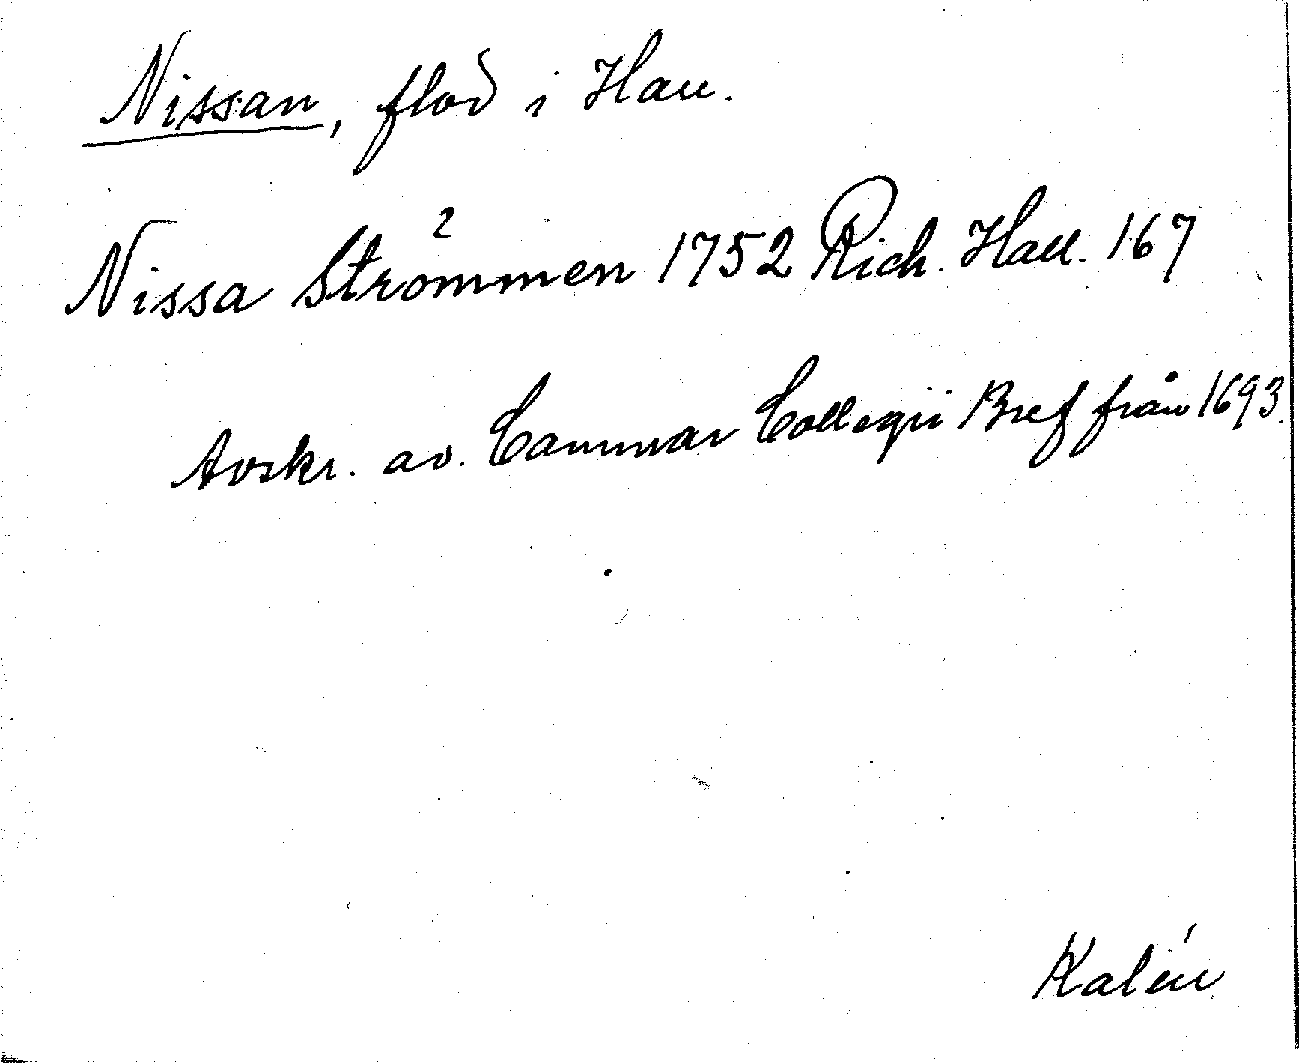 Nissan, flod i Hall.
Nissa Strömmen 1752 Rich. Hall. 167
Avskr. av. Cammar Collegii Bref från 1693.
Kalén